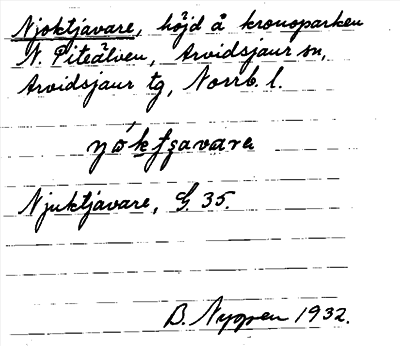 Njoktjavare, höjd å kronoparken
N. Piteälven, Arvidsjaur sn,
Arvidsjaur tg, Norrb. l.
Njuktjavare, G. 35.
B. Nygren 1932.